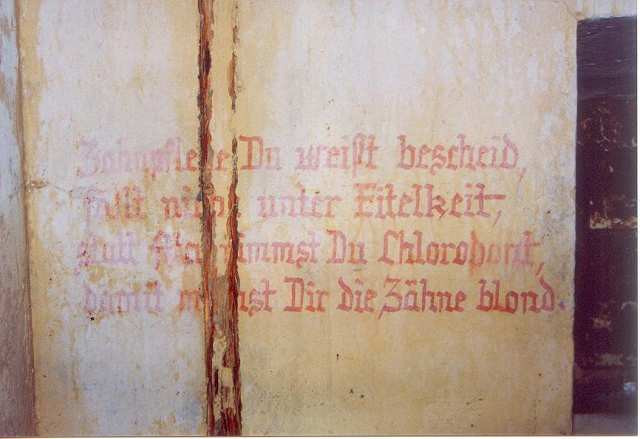 Zahnpflege Du weist bescheid,
fällt nicht unter Eitelkeit,
statt nimmst Du Chlorodont,
damit machst Dir die Zähne blond.